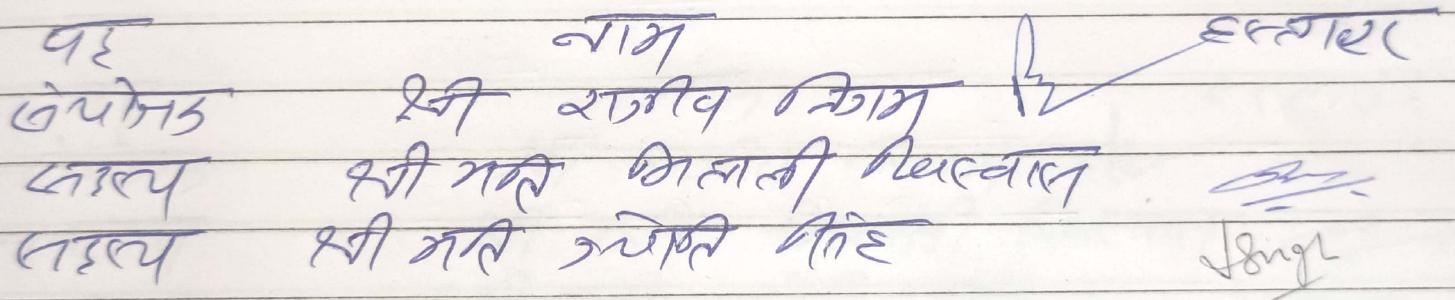 पद नाम हस्ताक्षर
संयोजक श्री राजीव निगम
सदस्य श्री मति मिताली विश्वास
सदस्य श्री मति ज्योति सिंह JSingh